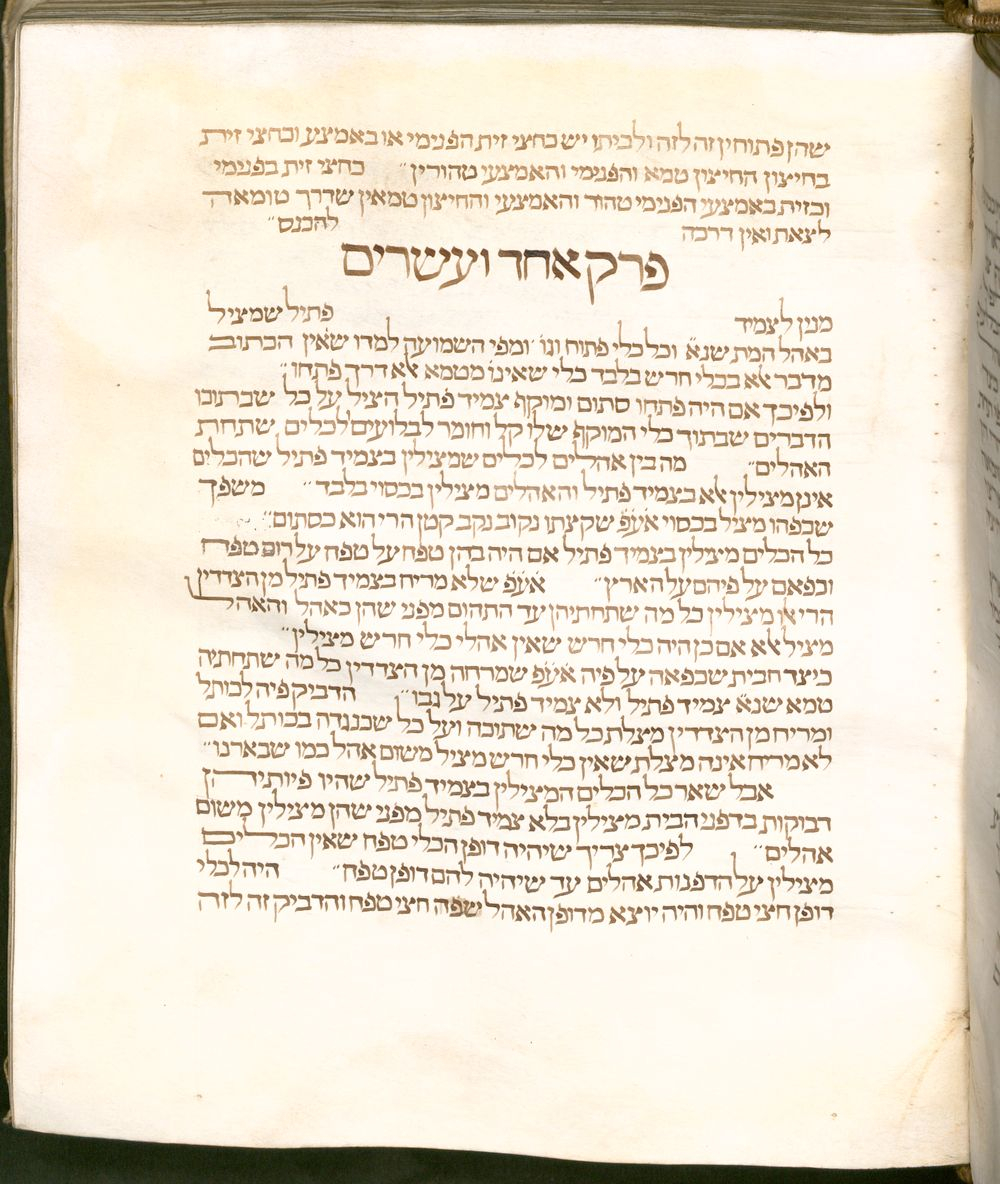 שהן פתוחין זה לזה ולביתו יש כחצי זית הפנימי או באמצע וכחצי זית
בחיצון החיצון טמא והפנימי והאמצעי טהורין״ כחצי זית בפנימי
וכזית באמצעי הפנימי טהור והאמצעי והחיצון טמאין שדרך טומאה
לצאת ואין דרכה להכנס״
פרק אחד ועשרים
מנין לצמיד פתיל שמציל
באהל המת שנא׳ וכל כלי פתוח וגו׳ ומפי השמועה למדו שאין הכתוב
מדבר אלא בכלי חרש בלבד כלי שאינו מטמא אלא דרך פתחו״
ולפיכך אם היה פתחו סתום ומוקף צמיד פתיל הציל על כל שבתוכו
הדברים שבתוך כלי המוקף שלו קל וחומר לבלועים לכלים שתחת
האהלים״ מה בין אהלים לכלים שמצילין בצמיד פתיל שהכלים
אינן מצילין אלא בצמיד פתיל והאהלים מצילין בכסוי בלבד״ משפך
שכפהו מציל בכסוי אע״פ שקצתו נקוב נקב קטן הרי הוא כסתום״
כל הכלים מצילין בצמיד פתיל אם היה בהן טפח על טפח על רום טפח
וכפאם על פיהם על הארץ״ אע״פ שלא מריח בצמיד פתיל מן הצדדין
הרי אלו מצילין כל מה שתחתיהן עד התהום מפני שהן כאהל והאהל
מציל אלא אם כן היה כלי חרש שאין אהלי כלי חרש מצילין״
כיצד חבית שכפאה על פיה אע״פ שמרחה מן הצדדין כל מה שתחתיה
טמא שנא׳ צמיד פתיל ולא צמיד פתיל על גבו״ הדביק פיה לכותל
ומריח מן הצדדין מצלת כל מה שתוכה ועל כל שכנגדה בכותל ואם
לא מריח אינה מצלת שאין כלי חרש מציל משום אהל כמו שבארנו״
אבל שאר כל הכלים המצילין בצמיד פתיל שהיו פיותיהן
דבוקות בדפני הבית מצילין בלא צמיד פתיל מפני שהן מצילין משום
אהלים״ לפיכך צריך שיהיה דופן הכלי טפח שאין הכלים
מצילין על הדפנות אהלים עד שיהיה להם דופן טפח״ היה לכלי
דופן חצי טפח והיה יוצא מדופן האהל שפה חצי טפח והדביק זה לזה